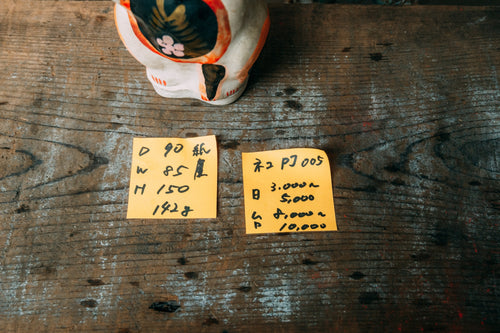 D 90 紙
W 85
H 150
142g
ネコ PJ 005
B 3,000~
5,000
8,000~
10,000